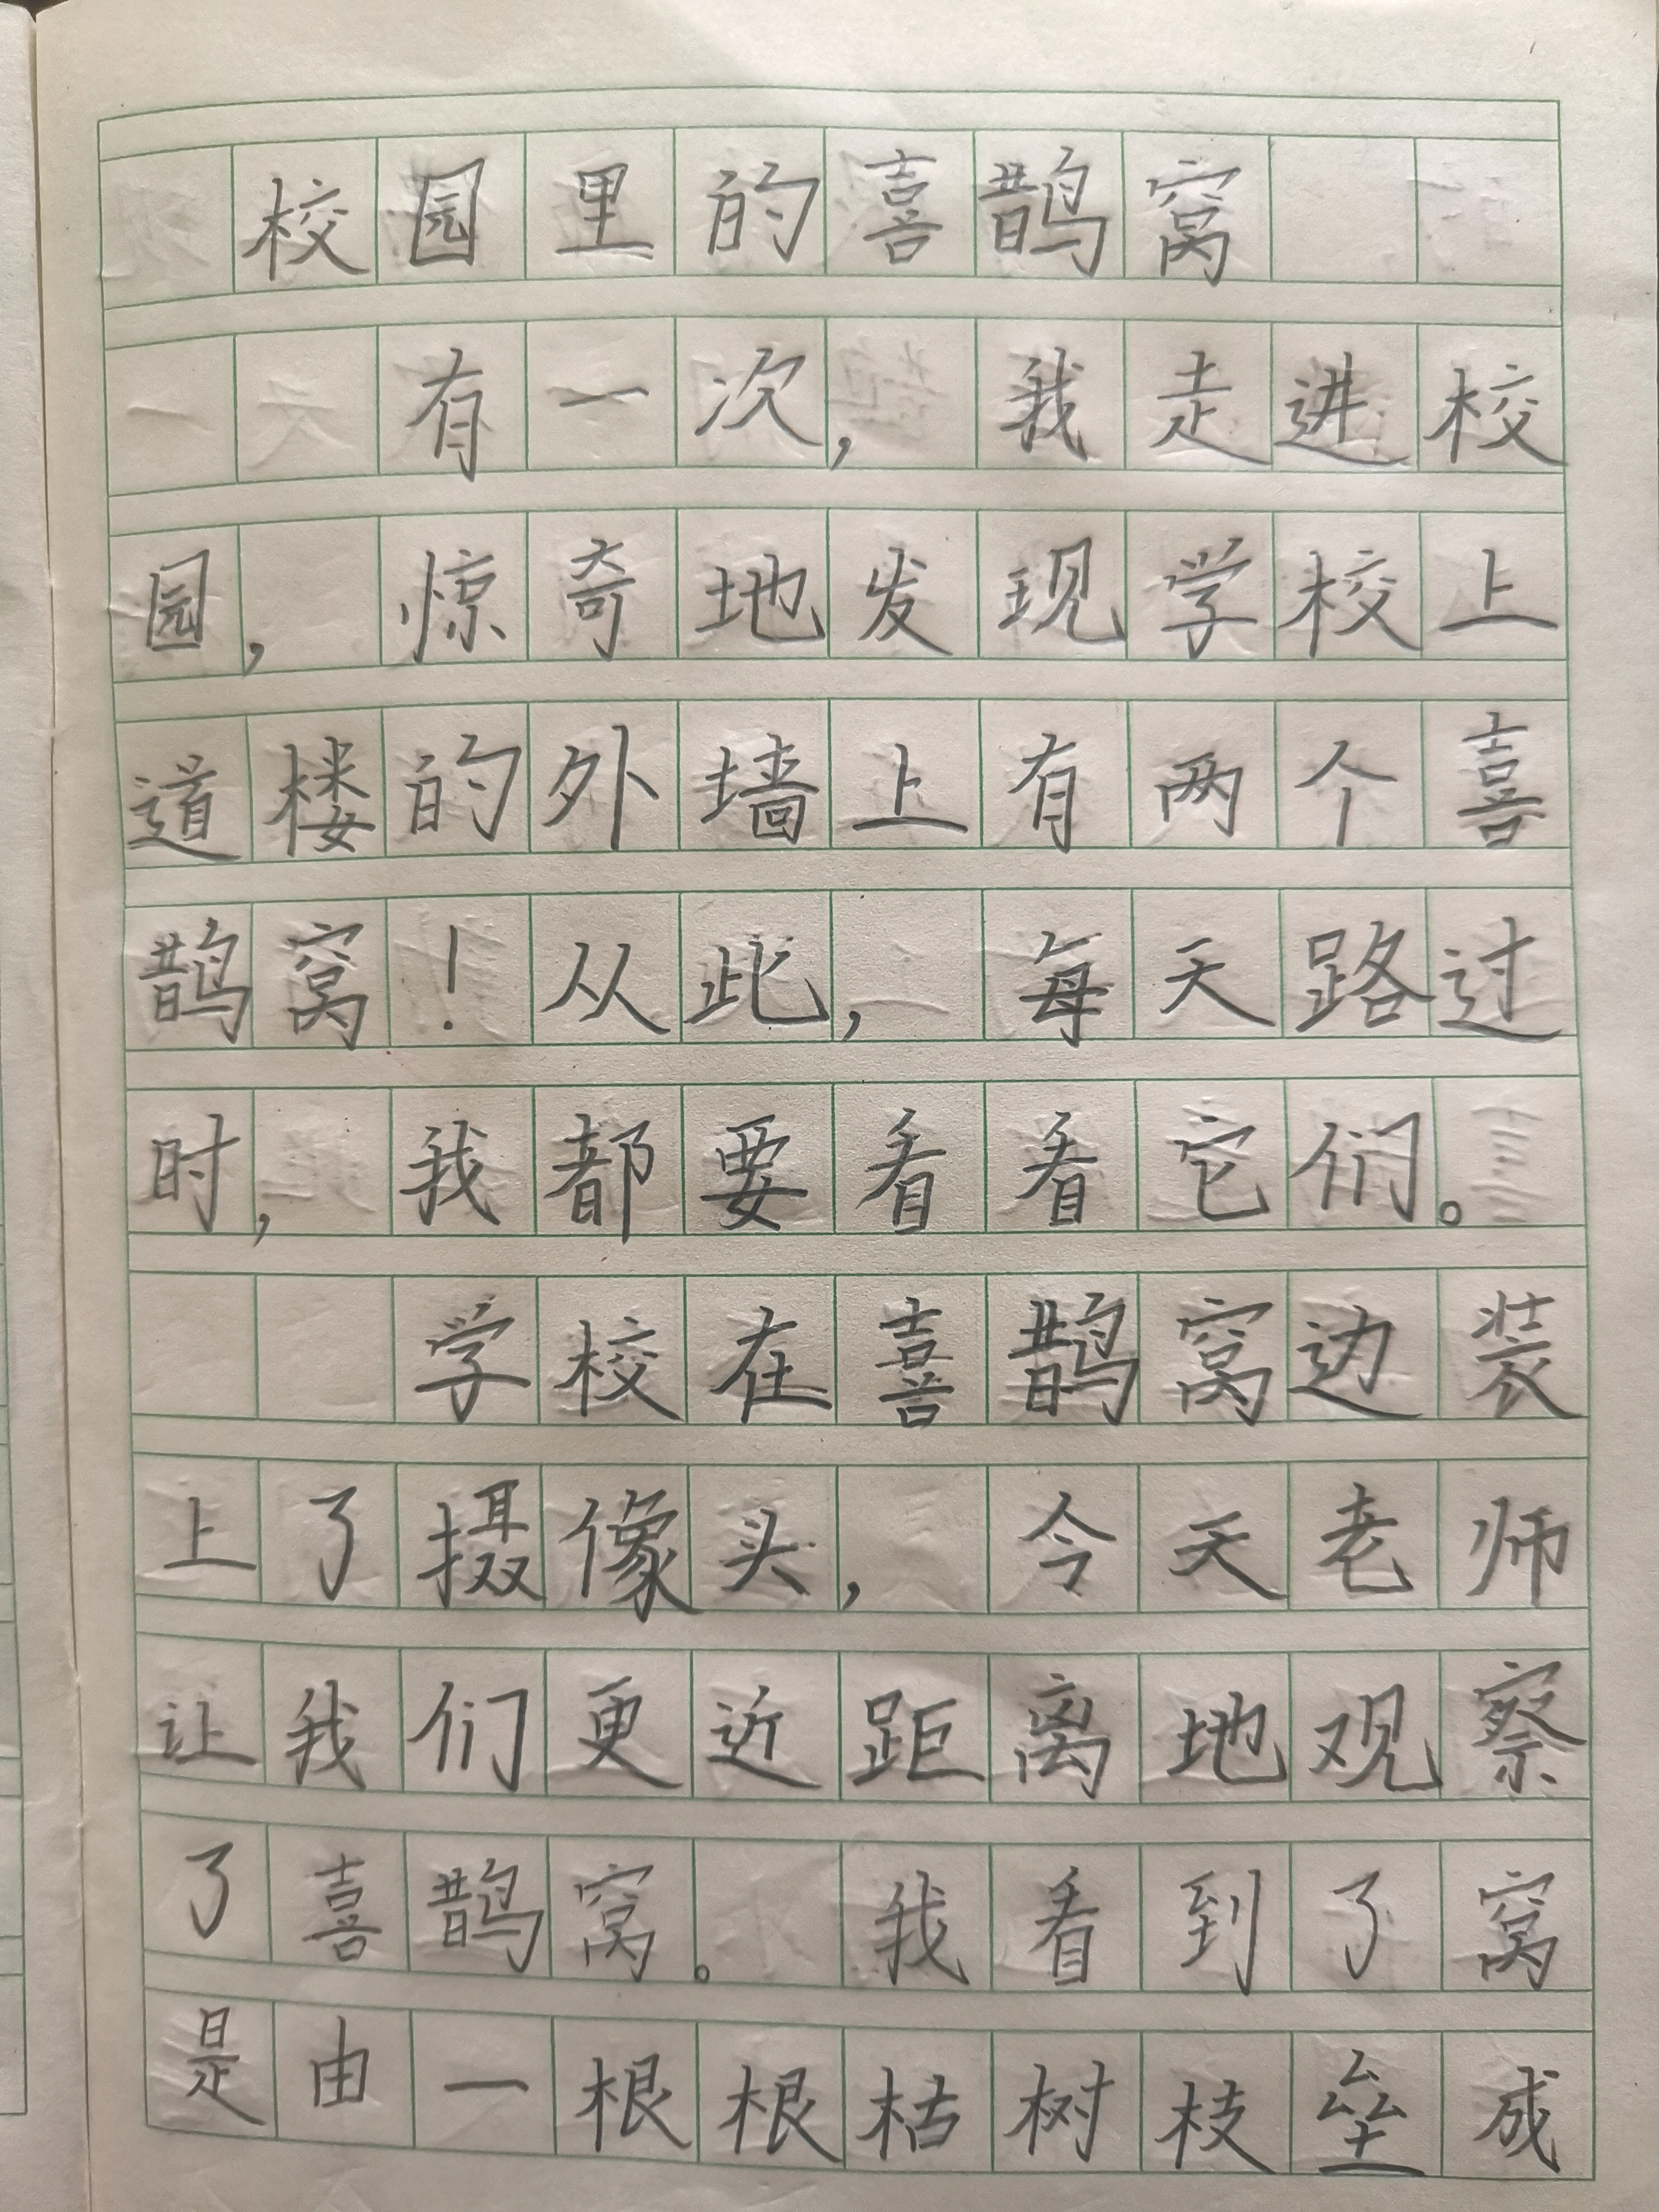 校园里的喜鹊窝
有一次，我走进校
园，惊奇地发现学校上
道楼的外墙上有两个喜
鹊窝！从此，每天路过
时，我都要看看它们。
学校在喜鹊窝边装
上了摄像头，今天老师
让我们更近距离地观察
了喜鹊窝。我看到了窝
是由一根根枯树枝垒成